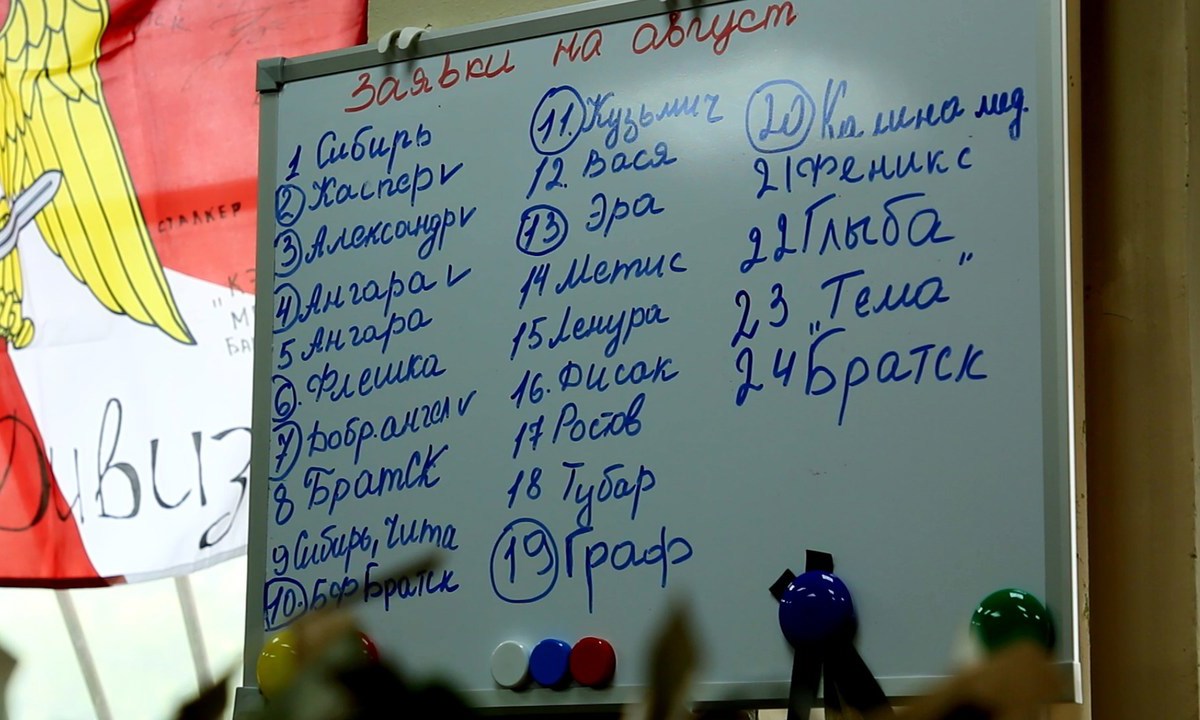 Заявки на август
1 Сибирь
2 Каспер
3 Александр
4 Ангара
5 Ангара
6. Флешка
7 Добр. ангел
8 Братск
9 Сибирь, Чита
10. БФ Братск
11. Кузьмич
12. Вася
13 Эра
14 Метис
15 Ленура
16. Дисак
17 Ростов
18 Тубар
19 Граф
20 Калина мед.
21 Феникс
22 Глыба
23 „Тема"
24 Братск
СТАЛКЕР